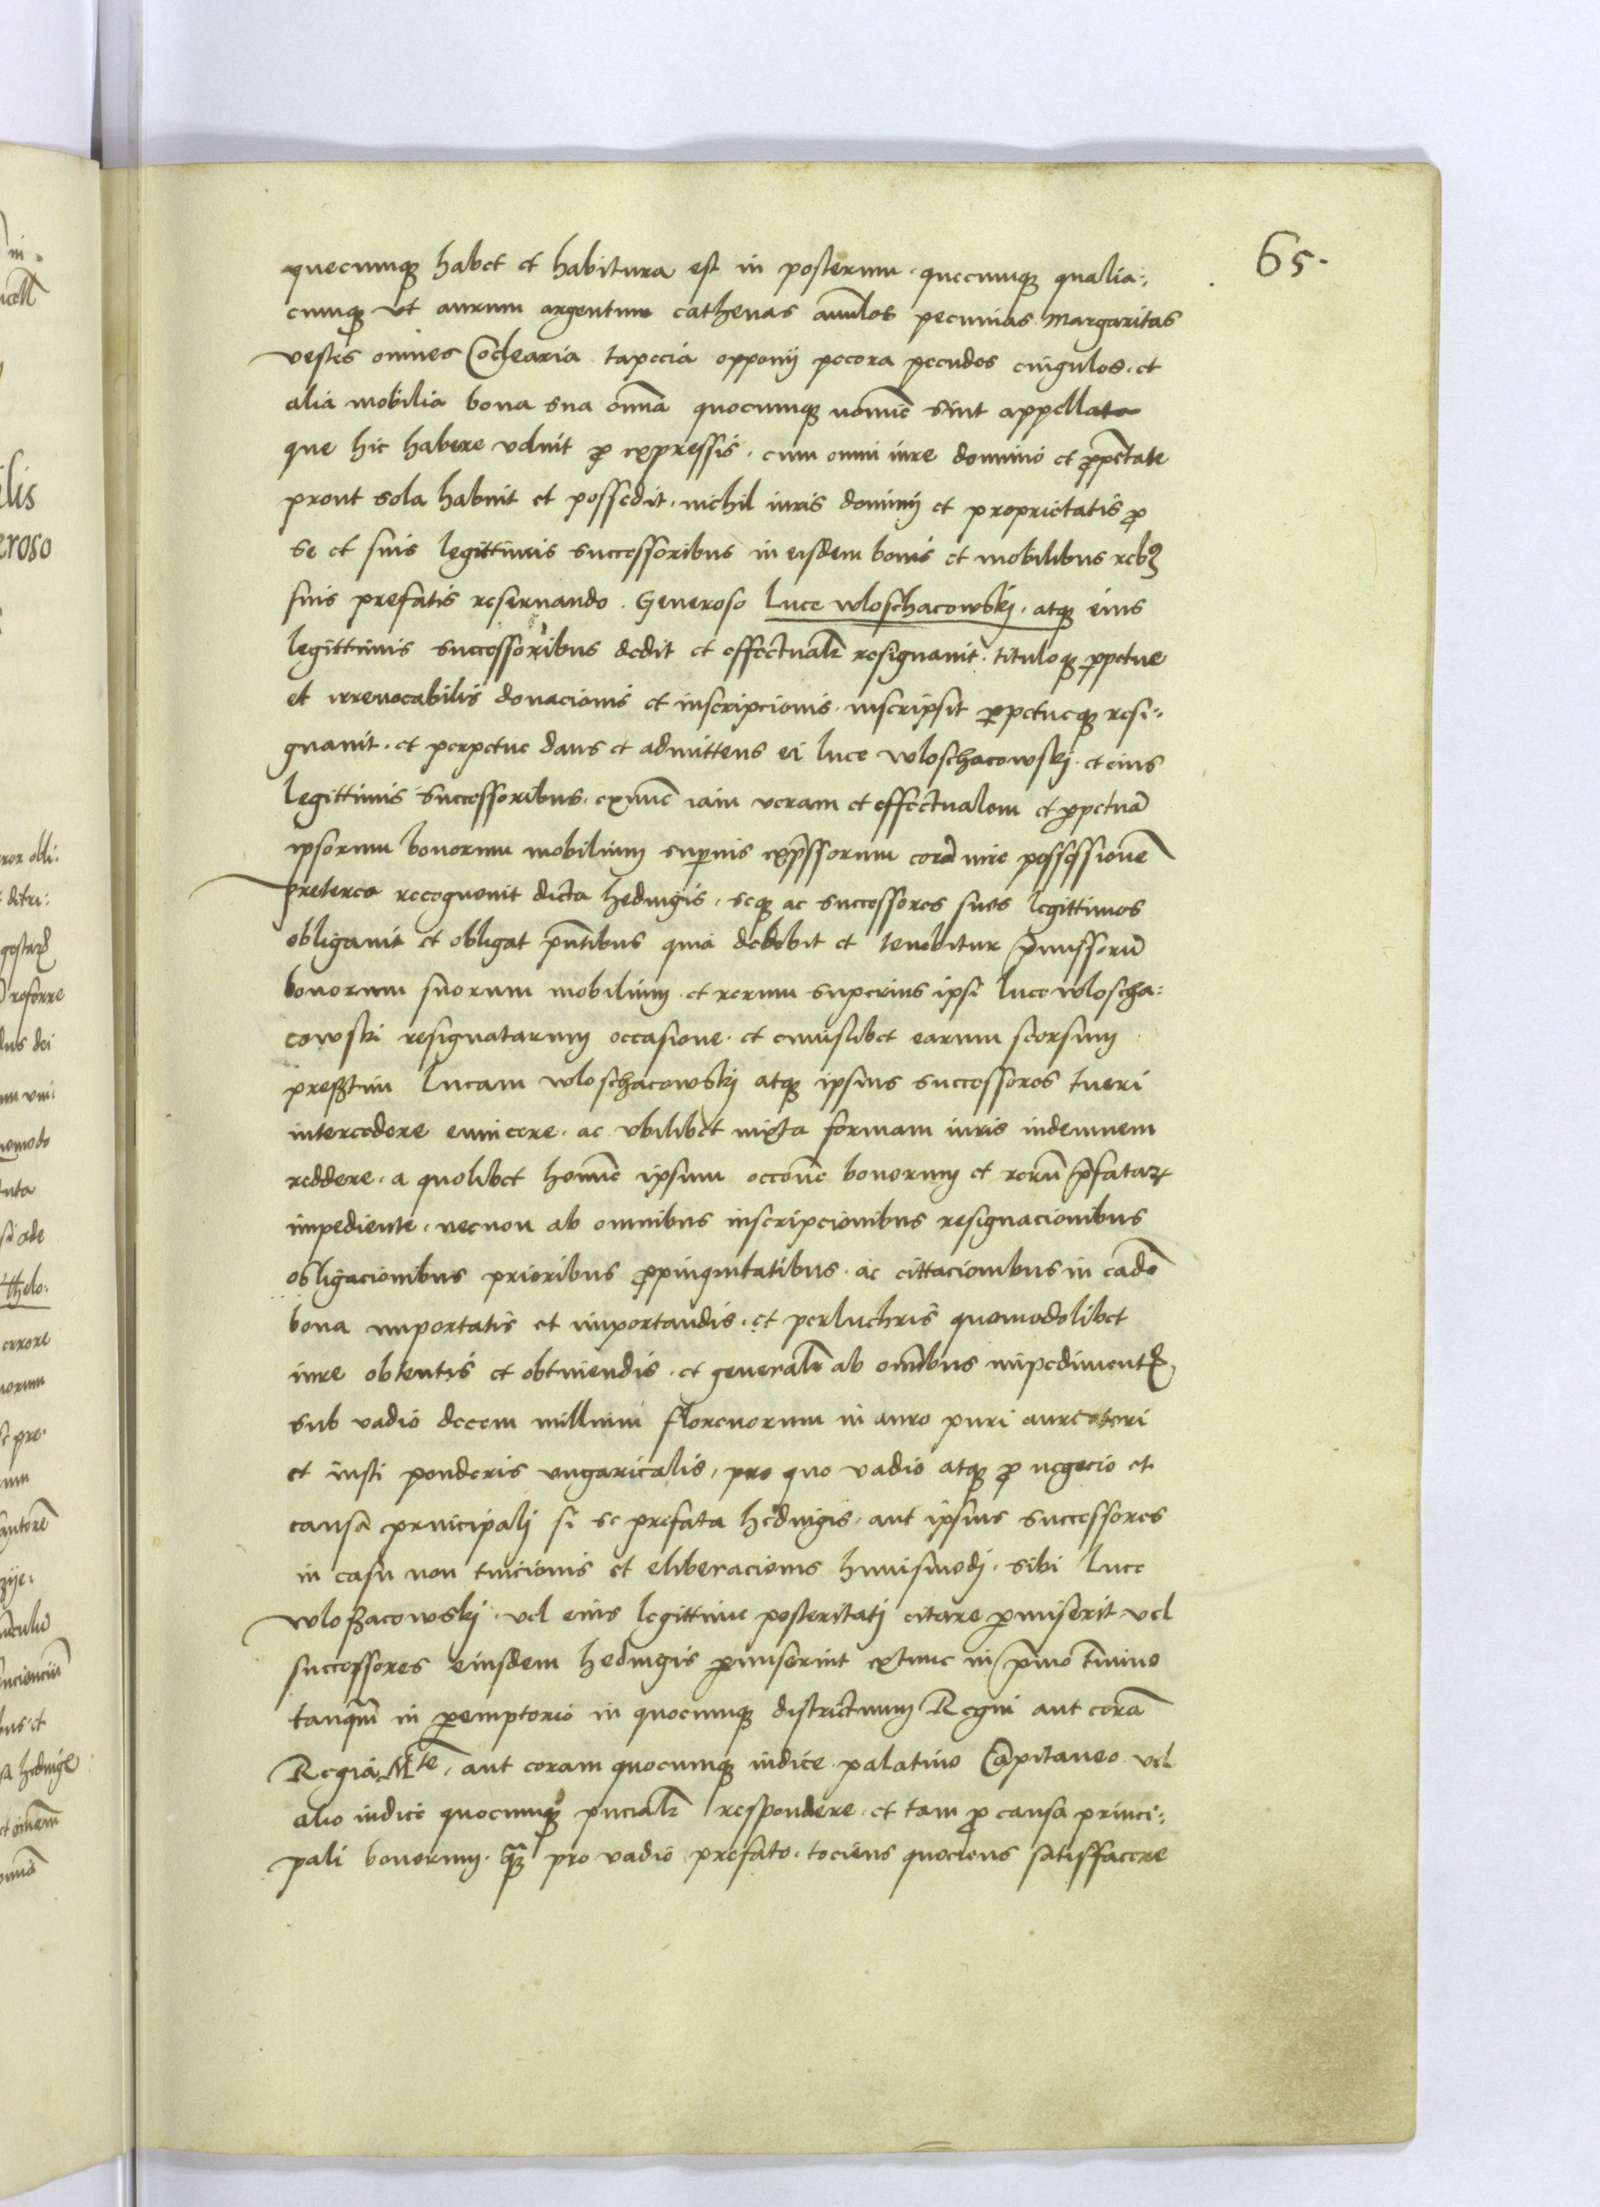 65.
quecumqꝫ habet et habitura est in posterum. quecumqꝫ qualia:
cumqꝫ ut aurum argentum cathenas annulos pecunias Margaritas
vestes omnes Coclearia tapecia opponij pecora pecudes cingulos. et
alia mobilia bona sua omnia quocumqꝫ nomine sint appellata
que hic habere voluit ꝓ expressis. cum omni iure dominio et ꝓprietate
prout sola habuit et possedit. nichil iuris dominij et proprietatis ꝓ
se et suis legittimis successoribus in eisdem bonis et mobilibus rebꝫ
suis prefatis reseruando. Generoso luce wloschacowskj. atqꝫ eius
legittimis successoribus dedit et effectualr resignauit. tituloqꝫ ꝑpetue
et irreuocabilis donacionis et inscripcionis. inscripsit ꝑpetueqꝫ resi:
gnauit. et perpetue dans et admittens ei luce wloschacowskj. et eius
legittimis successoribus. extunc iam veram et effectualem et ꝑpetuā
ipsorum bonorum mobilium superius expressorum corā iure possessionē
preterea recognouit dicta hedwigis. seqꝫ ac successores suos legittimos
obligauit et obligat pn̄tibus quia debebit et tenebitur p̄missorū
bonorum suorum mobilium et rerum superius ipsi luce wloscha:
cowski resignatarum occasione. et cuiuslibet earum seorsum
prefatum lucam wloschacowskj atqꝫ ipsius successores tueri
intercedere euincere. ac vbilibet iuxta formam iuris indemnem
reddere. a quolibet homine ipsum occōne bonorum et rerū p̄fatarꝝ
impediente. necnon ab omnibus inscripcionibus resignacionibus
obligacionibus prioribus ꝓpinquitatibus. ac cittacionibus in eadē
bona importatis et importandis. et perluchris quomodolibet
iure obtentis et obtinendis. et generalr ab omībus impedimentꝭ.
sub vadio decem millium florenorum in auro puri auri boni
et iusti ponderis vngaricalis, pro quo vadio atqꝫ ꝓ negocio et
causa principalj si se prefata hedwigis. aut ipsius successores
in casu non tuicionis et eliberacionis huiusmodj. sibi luce
wloßacowskj. vel eius legittime posteritatj citare ꝑmiserit vel
successores eiusdem hedwigis ꝑmiserint extunc in p̄mo termino
tanqm̄ in ꝑemptorio in quocumqꝫ districtuum Regni aut corā
Regia Mte, aut coram quocumqꝫ iudice palatino Capitaneo vel
alio iudice quocumqꝫ respondere. et tam ꝓ causa princi:
pali bonorum. pro vadio prefato. tociens quociens satisfacere